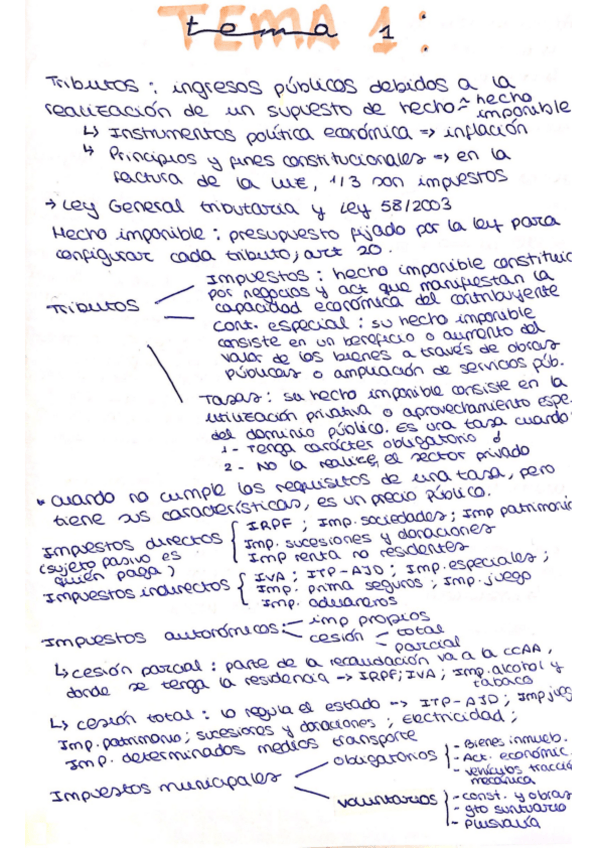 TEMA 1:
tema 1
Tributos: ingresos públicos debidos a la
realización de un supuesto de hecho ~ hecho
imponible
↳ Instrumentos política económica => inflación
↳ Principios y fines constitucionales => en la
factura de la luz, 1/3 son impuestos
→ Ley General tributaria y Ley 58/2003
Hecho imponible: presupuesto fijado por la ley para
configurar cada tributo, art 20.
Tributos
Impuestos: hecho imponible constituid
por negocios y act que manifiestan la
capacidad económica del contribuyente
Cont. especial: su hecho imponible
consiste en un beneficio o aumento del
valor de los bienes a través de obras
públicas o ampliación de servicios púb.
Tasas: su hecho imponible consiste en la
utilización privativa o aprovechamiento espe.
del dominio público. Es una tasa cuando:
1- Tenga carácter obligatorio ó
2- No la realice el sector privado
* Cuando no cumple los requisitos de una tasa, pero
tiene sus características, es un precio público.
Impuestos directos
(sujeto pasivo es
quien paga)
IRPF; Imp. sociedades; Imp patrimonio
Imp. sucesiones y donaciones
Imp renta no residentes
Impuestos indirectos
IVA; ITP-AJD; Imp. especiales;
Imp. prima seguros; Imp. juego
Imp. aduaneros
Impuestos autonómicos:
imp propios
cesión
total
parcial
↳ cesión parcial: parte de la recaudación va a la CCAA,
donde se tenga la residencia -> IRPF; IVA; Imp. alcohol y
tabaco
↳ cesión total: lo regula el estado -> ITP-AJD; Imp jueg
Imp. patrimonio; sucesiones y donaciones; Electricidad;
Imp. determinados medios transporte
Impuestos municipales
obligatorios
- Bienes inmueb.
- Act. económic.
- vehículos tracció
mecánica
voluntarios
- const. y obras
- gto suntuario
- Plusvalía